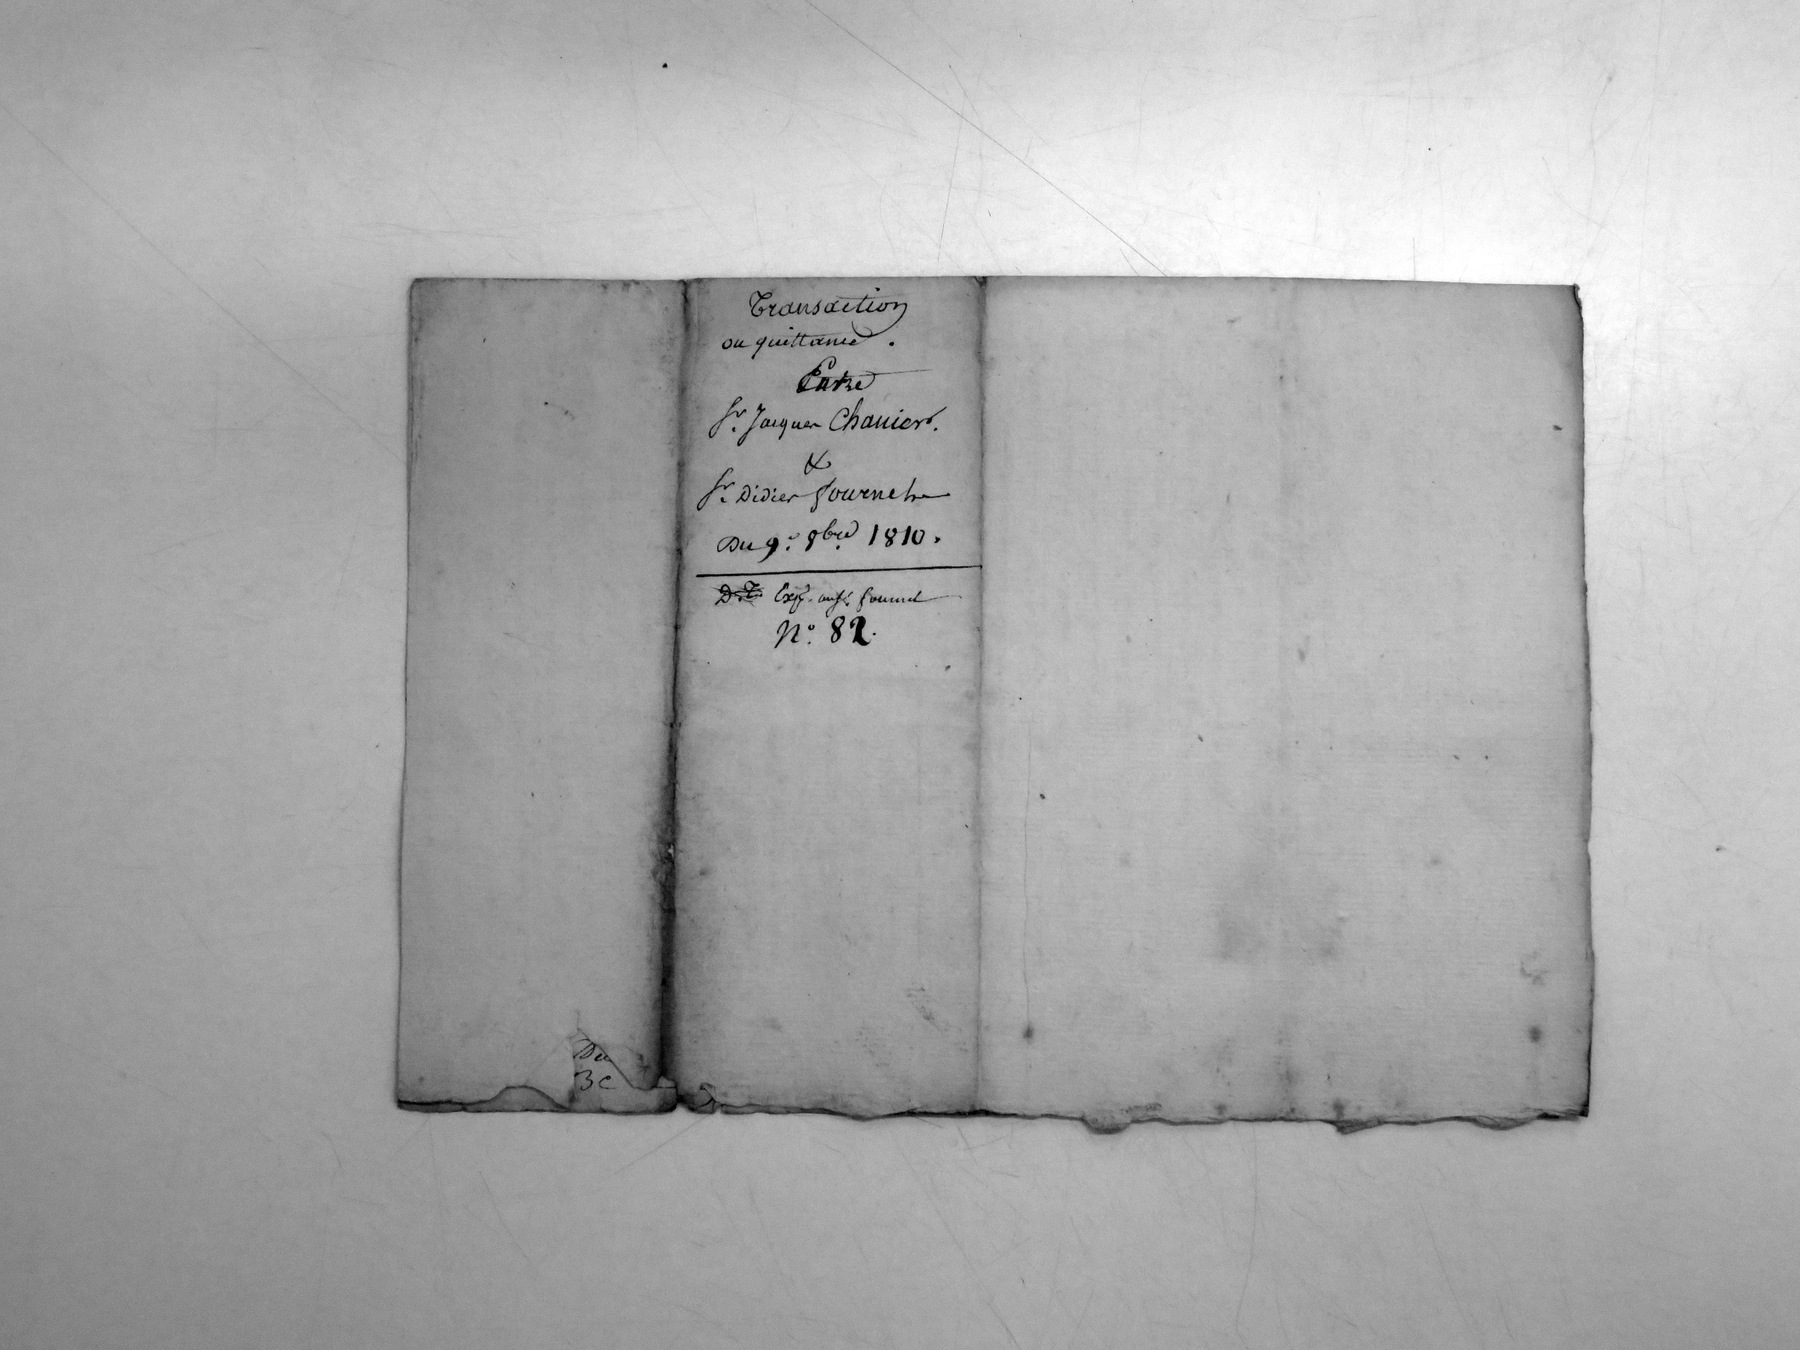 Transaction
ou quittance.
Entre
Sr. Jacques Chaniers.
&
Sr. Didier fournet
Du 9e. 8bre 1810.
D.T. Exp. au Sr. fournet
No. 82.
Du
3e